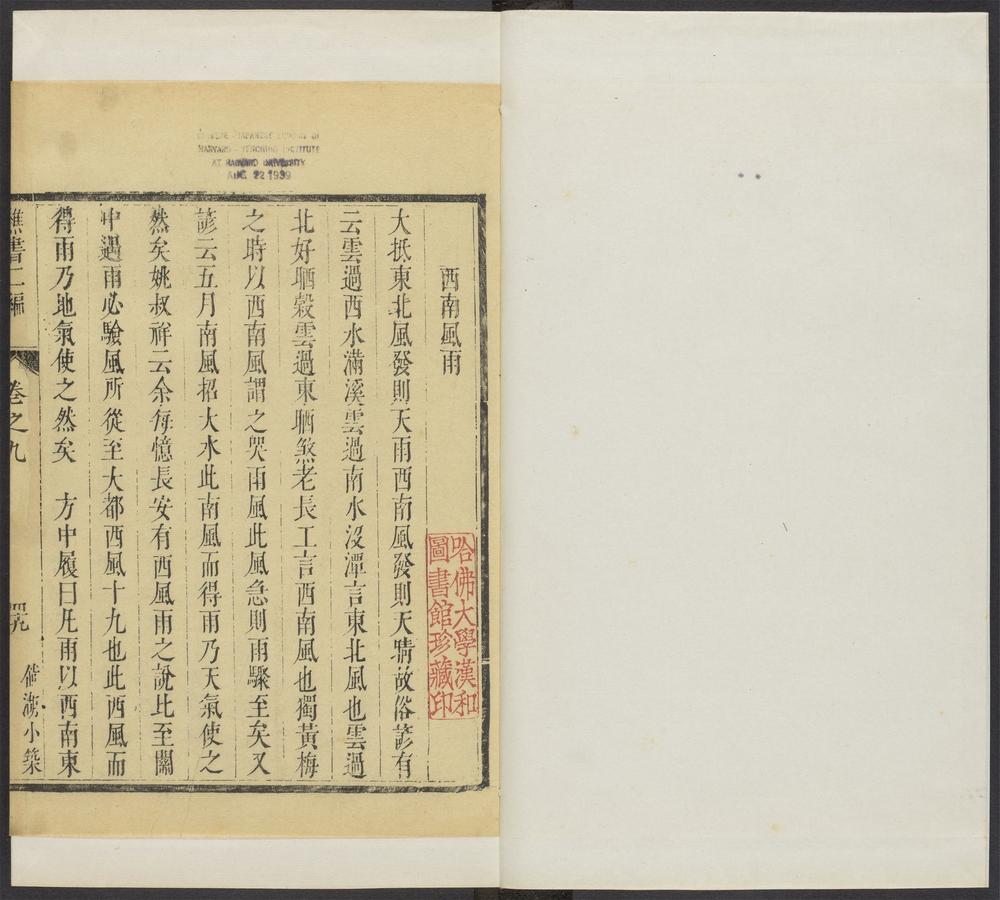 CHINESE - JAPANESE LIBRARY OF
HARVARD - YENCHING INSTITUTE
AT HARVARD UNIVERSITY
AUG 22 1939
西南風雨
大抵東北風發則天雨西南風發則天晴故俗諺有
云雲過西水滿溪雲過南水沒潭言東北風也雲過
北好晒穀雲過東晒煞老長工言西南風也獨黃梅
之時以西南風謂之哭雨風此風急則雨驟至矣又
諺云五月南風招大水此南風而得雨乃天氣使之
然矣姚叔祥云余每憶長安有西風雨之說比至關
中遇雨必驗風所從至大都西風十九也此西風而
得雨乃地氣使之然矣　方中履曰凡雨以西南東
樵書二編
卷之九
罒九
倘湖小築
哈佛大學漢和
圖書館珍藏印